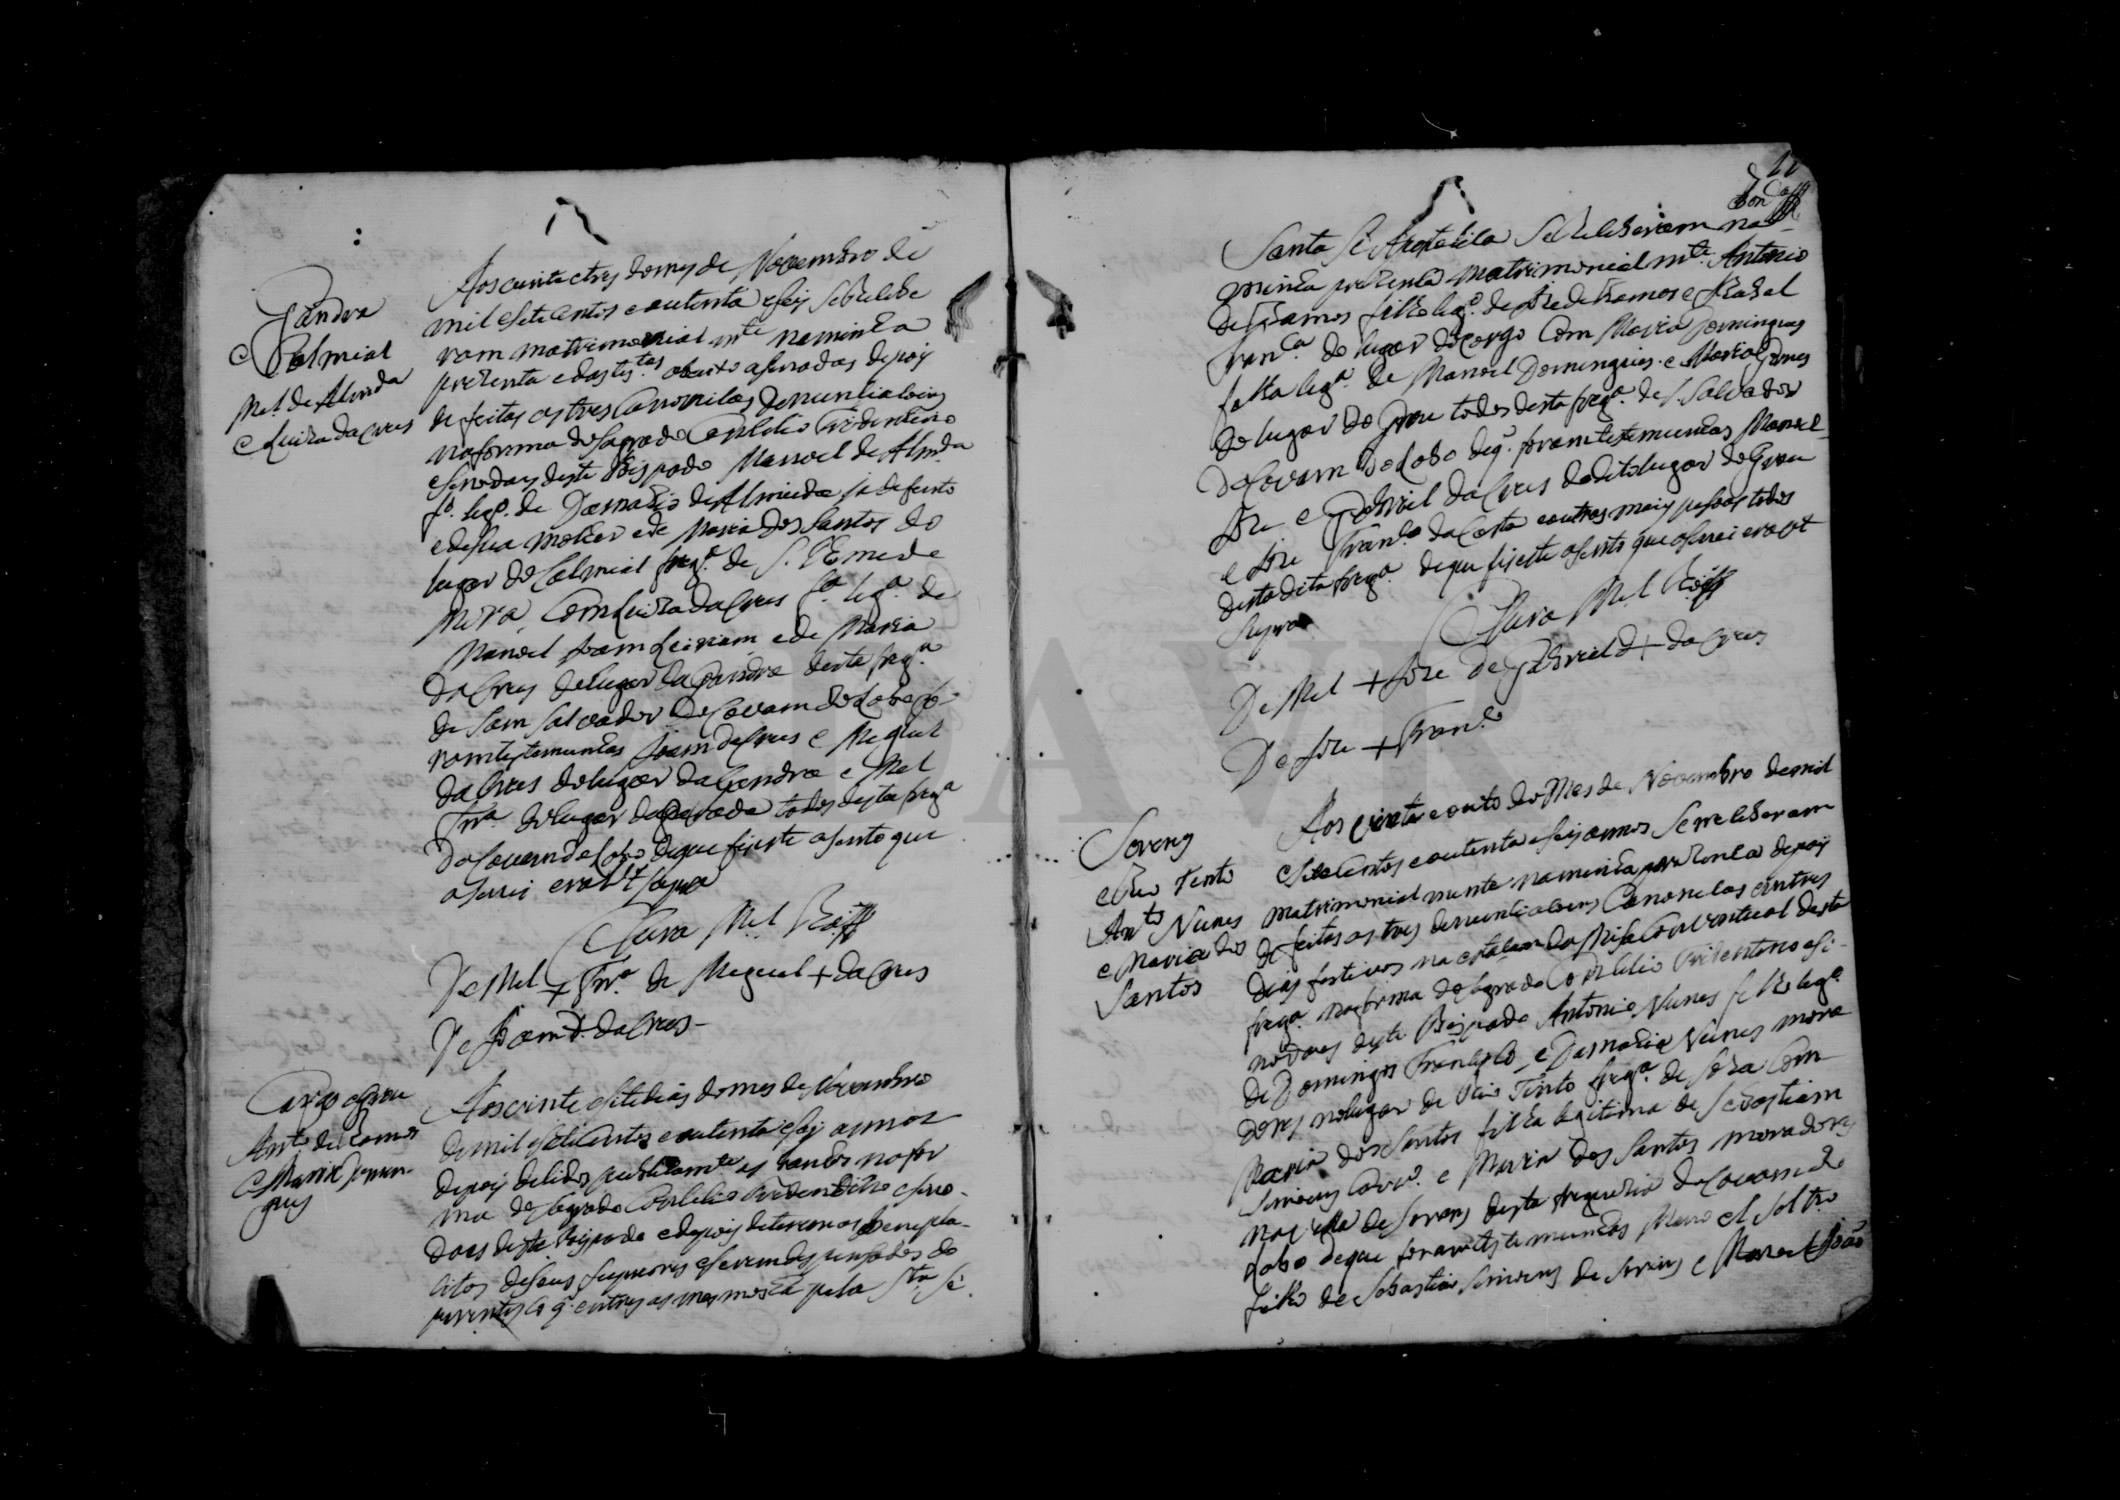 Gandra
e Calmial
Mel. de Almda
e Luiza da Crus
Aos vinte e tres do mes de Novembro de
mil e sete centos e outenta e seis se recebe
ram matrimonial mte na minha
prezenta e das tes.tas abaixo asinadas depois
de feitas as tres Canonicas denunciacoins
na forma do Sagrado Concilio Tridentino
e sinodais deste Bispado Manoel de Almda
fo. lego. de Damazio de Almeida ja defunto
e de sua molher e de Maria dos Santos do
lugar do Calmial frega. de S. Tome de
Mira, Com Luiza da Crus fa. lega. de
Manoel Joam e de Maria
da Crus do lugar da Gandra desta frega
de Sam Salvador de Covam do Lobo fo-
ram testemunhas Joam da Crus e Miguel
da Crus do lugar da Gandra e Mel
Frra. do lugar da todos desta frega
do Covam do Lobo de que fis este asento que
asinei era ut supra
O Cura Mel
De Mel + Frra. de Miguel + da Crus
De Joam + da Crus -
Corgo e Grou
Anto. de Ramos
e Maria Domin
gues
Aos vinte e sete dias do mes de Novembro
de mil e sete centos e outenta e seis annos
depois de lidos publicamte os banhos na for
ma do Sagrado Concilio Tridentino e sino-
dais deste Bispado e depois de terem os benepla-
citos de seus superiores e serem despensados do
parentesco q. entre as mesmos ha pela Sta Se
11
Santa Se Apostolica Se Receberam na
minha prezenta matrimonial mte. Antonio
de Ramos filho lego. de Joze de Ramos e Izabel
Franca. do lugar do Corgo Com Maria Domingues
filha lega. de Manoel Domingues e Maria Gomes
do lugar do Grou todos desta frega. de S. Salvador
do Covam do Lobo de q. foram testemunhas Manoel
Joze e Gabriel da Crus do dito lugar do Grou
e Joze Franco da Costa e outras mais pessoas todos
desta dita frega. de que fis este asento que asinei era ut
supra
O Cura Mel
De Mel + Joze De Gabriel + da Crus
De Joze + Franco
Sorens
e Rio Tinto
Anto Nunes
e Maria dos
Santos
Aos vinte e outo do Mes de Novembro de mil
e sete centos e outenta e seis annos Se receberam
matrimonial mente na minha prezenca depois
de feitas as tres denunciacoins Canonicas em tres
dias festivos na estacam da Misa Conventual desta
frega. na forma do Sagrado Concilio Tridentino e si-
nodais deste Bispado Antonio Nunes filho lego.
de Domingos Francisco e Damazia Nunes mora
dores no lugar de Rio Tinto frega. de Soza Com
Maria dos Santos filha legitima de Sebastiam
Simoens e Maria dos Santos moradores
no de Sorens desta freguezia do Covam do
Lobo de que foram testemunhas Mano el
filho de Sebastiao Simoens de Sorens e Manoel João